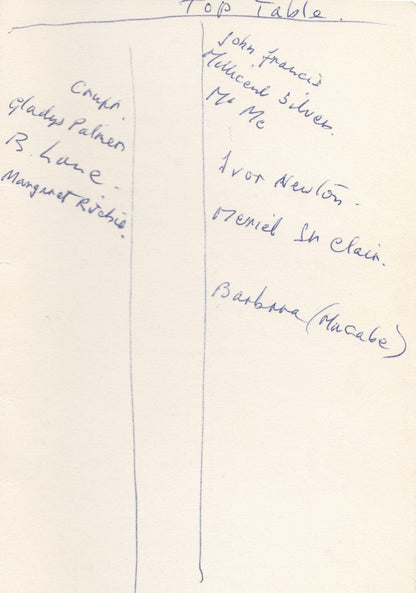 Top Table.
Gladys Palmer
B. Lane.
Margaret Ritchie.
John Francis
Millicent Silver.
Mr Mc
Ivor Newton.
Meriel St Clair.
Barbara (Macabe)